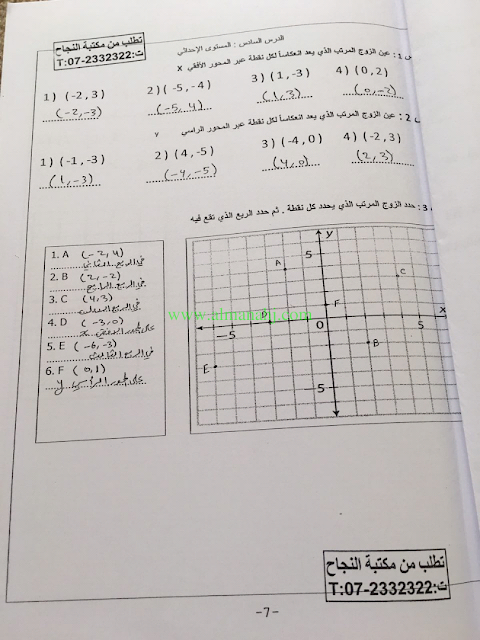 تطلب من مكتبة النجاح
ت:07-2332322:T
الدرس السادس : المستوى الإحداثي
س 1 : عين الزوج المرتب الذي يعد انعكاساً لكل نقطة عبر المحور الأفقي X
1) (-2, 3) 2) (-5, -4) 3) (1, -3) 4) (0, 2)
(-2, -3) (-5, 4) (1, 3) (0, -2)
2 : عين الزوج المرتب الذي يعد انعكاساً لكل نقطة عبر المحور الراسي y
1) (-1, -3) 2) (4, -5) 3) (-4, 0) 4) (-2, 3)
(1, -3) (-4, -5) (4, 0) (2, 3)
3 : حدد الزوج المرتب الذي يحدد كل نقطة . ثم حدد الربع الذي تقع فيه
1. A (-2, 4)
في الربع الثاني
2. B (2, -2)
في الربع الرابع
3. C (4, 3)
في الربع
4. D (-3, 0)
على المحور
5. E (-6, -3)
في الربع الثالث
6. F (0, 1)
على المحور الرأسي y
y
5
A
C
F
D
x
-5
0
5
B
E
-5
تطلب من مكتبة النجاح
ت:07-2332322:T
-7-